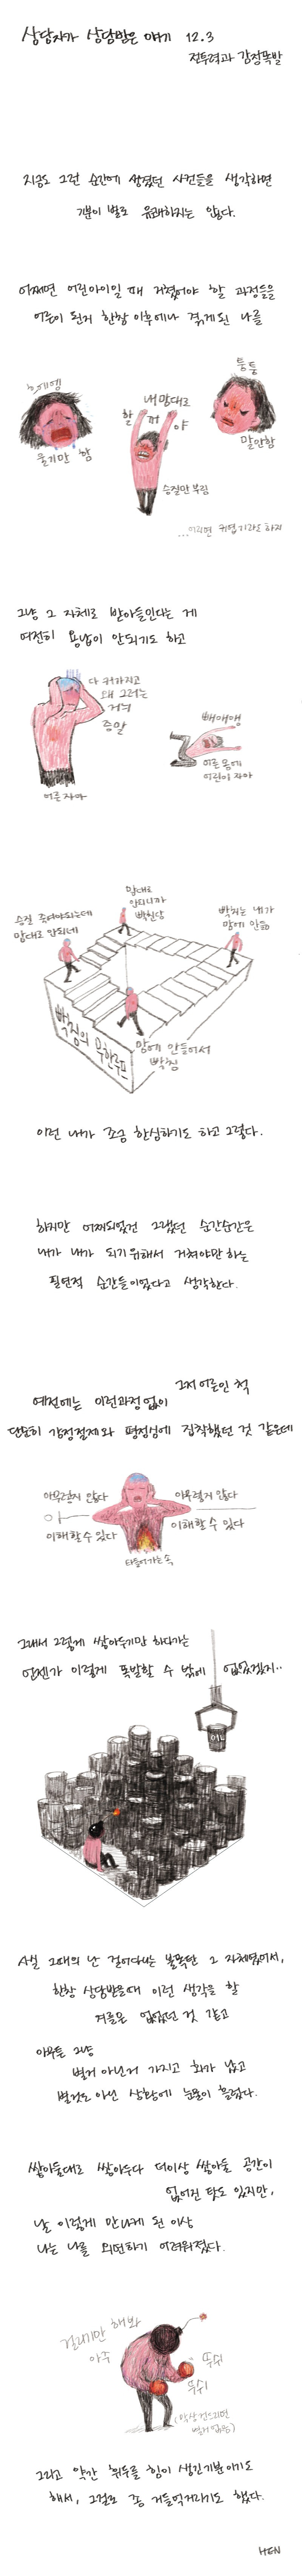 상담자가 상담받은 얘기 12.3
전투력과 감정폭발
지금도 그런 순간에 생겼던 사건들을 생각하면
기분이 별로 유쾌하지는 않다.
어쩌면 어린아이일 때 거쳤어야 할 과정들을
어른이 된지 한참 이후에나 겪게된 나를
흐에엥
울기만 함
내맘대로
할 거 야
승질만 부림
퉁퉁
말안함
...어리면 귀엽기라도 하지
그냥 그 자체로 받아들인다는 게
여전히 용납이 안되기도 하고
다 커가지고
왜 그러는
거니
증말
어른 자아
빼애앵
어른 몸에
어린이 자아
승질 죽여야되는데
맘대로 안되네
맘대로
안되니까
빡친당
빡치는 내가
맘에 안듦
맘에 안들어서
빡침
빡침의 무한루프
이런 내가 조금 한심하기도 하고 그렇다.
하지만 어찌되었건 그랬던 순간순간은
내가 내가 되기위해서 거쳐야만 하는
필연적 순간들이었다고 생각한다.
예전에는 이런과정 없이 그저 어른인 척
단순히 감정절제와 평정심에 집착했던 것 같은데
아무렇지 않다
이해할 수 있다
아무렇지 않다
이해할 수 있다
타들어가는 속
그래서 그렇게 쌓아두기만 하다가는
언젠가 이렇게 폭발할 수 밖에 없었겠지..
OIL
사실 그때의 난 걸어다니는 불폭탄 그 자체였어서,
한창 상담받을때 이런 생각을 할
겨를은 없었던 것 같고
아무튼 그냥
별거 아닌거 가지고 화가 났고
별것도 아닌 상황에 눈물이 흘렀다.
쌓아둘대로 쌓아두다 더이상 쌓아둘 공간이
없어진 탓도 있지만,
날 이렇게 만나게 된 이상
나는 나를 외면하기 어려워졌다.
걸리기만 해봐
아주
뚜쉬
뚜쉬
(막상 건드리면
별거 없음)
그리고 약간 휘두를 힘이 생긴기분이기도
해서, 그걸로 좀 거들먹거리기도 했다.
HEN